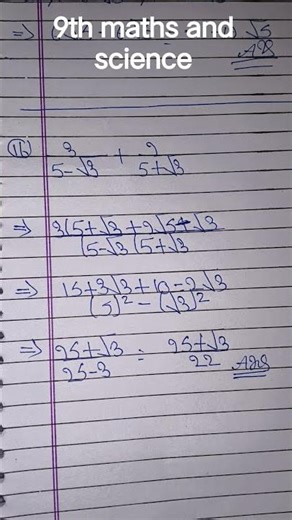 9th maths and
science
=> √5
Ans
(16) 3/(5-√3) + 2/(5+√3)
=> 3(5+√3 + 2√5-√3 / (5-√3 (5+√3
=> 15+3√3+10-2√3 / (5)² - (√3)²
=> 25+√3 / 25-3 = 25+√3 / 22 Ans